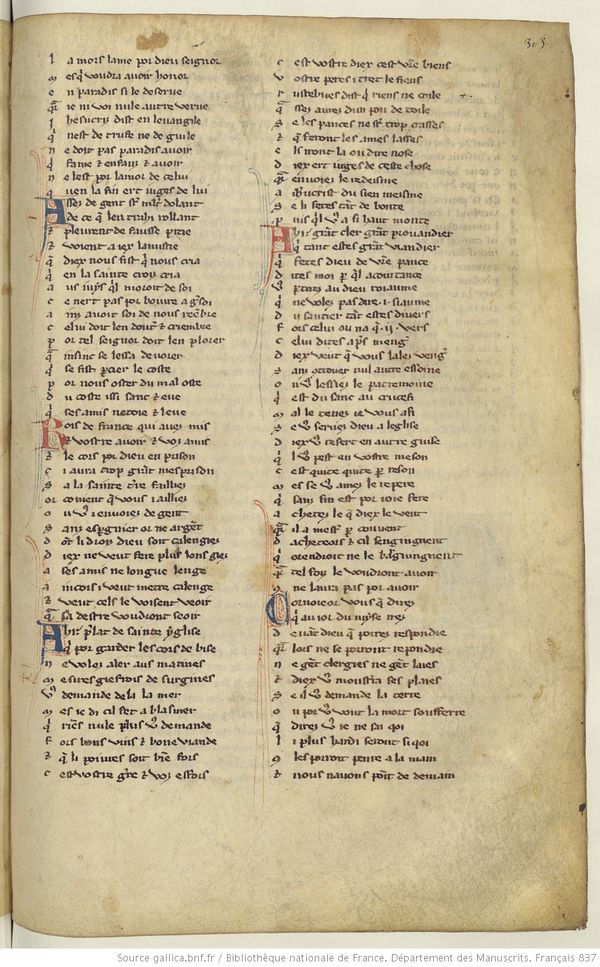 303
l a mors lame por dieu seignor
m es q̃ voudra auoir honor
e n paradis si le deserue
q̃r ie ni voi nule autre verue
J hesucriz dist en leuangile
q̃ nest de trufe ne de guile
n e doit pas paradis auoir
q̃ fame ⁊ enfanz ⁊ auoir
n e lest por lamor de celui
q̃ uen la fin ert iuges de lui
A sses de gent sõt mlt dolant
de ce q̃ len trahi rollant
⁊ pleurent de fausse pitie
⁊ voient a iex lamistie
q̃ diex nous fist q̃ nous cria
q̃ en la sainte crois cria
a us iuys q̃l moroit de soi
c e nert pas por boiure a gr̃soi
a ins auoit soi de nous reẽbre
c elui doit len douter ⁊ criembre
p or tel seignor doit len plorer
q̃ insinc se lessa deuorer
q̃ se fist p̃cier le coste
p or nous oster du mal oste
d u coste issi sanc ⁊ eue
q̃ ses amis netoie ⁊ leue
R ois de france qui aues mis
⁊ vostre auoir ⁊ voz amis
⁊ le cors por dieu en prison
c i aura trop grãt mesprison
s a la sainte tr̃e failliez
or couient q̃ vous i ailliez
o u vous i enuoiez de gent
s anz espargnier or ne argẽt
d õt li droiz dieu soit calengiez
d iex ne veut fere plus lons giez
a ses amis ne longue lenge
a incois i veut metre calenge
⁊ veut cels le voisent veoir
q̃ a sa destre voudront seoir
A hi p̃lat de sainte yglise
q̃ por garder les cors de bise
n e volez aler aus matines
m esires giefrois de surgines
vous demande dela la mer
m es ie di cil fet a blasmer
q̃ riẽs nule plus vous demande
f ors bons vins ⁊ bone viande
⁊ q̃ li poiures soit biẽ fors
c est vostre gr̃re ⁊ voz esfors
c est vostre diex cest vr̃e biens
v ostre peres i tret le fiens
r ustebues dist q̃ riens ne coile
q̃ asses aures dun pou de toile
s e les pances ne sõt trop crasses
⁊ q̃ feront les ames lasses
e les iront la ou dire nose
d iex ert iuges de ceste chose
q̃r enuoiez le redeisme
a ihũcrist du sien meisme
s e li fetes tãt de bonte
p uis q̃l vous a si haut monte
A hi grãt cler grãt prouandier
q̃ tant estes grãt viandier
q̃ fetes dieu de vr̃e pance
d ites moi p̃ q̃l acointance
vous p̃tirez au dieu roiaume
q̃ ne volez pas dire .i. siaume
d u sautier tãt estes diuers
f ors celui ou na q̃ .ij. vers
c elui dites ap̃s mengier
d iex veut q̃ vous lalez vengier
s anz controuer nul autre essoine
o u vous lessiez le patremoine
q̃ est du sanc au crucefi
m al le tenez ie vous afi
s e vous seruez dieu a leglise
d iex vous resert en autre guise
q̃l vous pest en vostre meson
c est quite quite p̃ reson
m es se vous amez le repere
q̃ sanz fin est por ioie fere
a chetez le q̃ diex le vent
q̃r il a mestier p̃ couuent
d achateors ⁊ cil sengingnent
q̃ orendroit ne le bargingnent
q̃r tel foiz le voudront auoir
q̃ ne laura pas por auoir
T ornoieor vous q̃ direz
q̃ au ior du iuyse irez
d euãt dieu q̃ porrez respondre
q̃r lors ne se porront repondre
n e gẽt clergies ne gẽt laies
⁊ diex vous monstra ses plaies
s e il vous demande la terre
o u por vous vout la mort soufferre
q̃ direz vous ie ne sai qoi
l i plus hardi seront si qoi
q̃ les porroit penre a la main
⁊ nous nauons poĩt de demain
Source gallica.bnf.fr / Bibliothèque nationale de France. Département des Manuscrits. Français 837